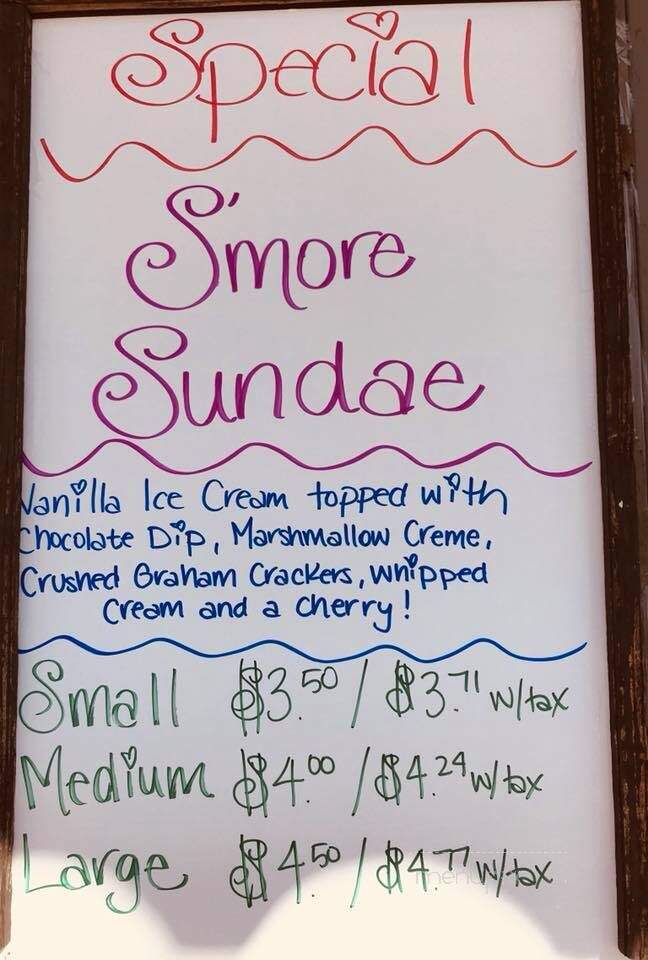 Special
S'more
Sundae
Vanilla Ice Cream topped with
Chocolate Dip, Marshmallow Creme,
Crushed Graham Crackers, whipped
Cream and a cherry!
Small $3.50 / $3.71 w/tax
Medium $4.00 / $4.24 w/tax
Large $4.50 / $4.77 w/tax